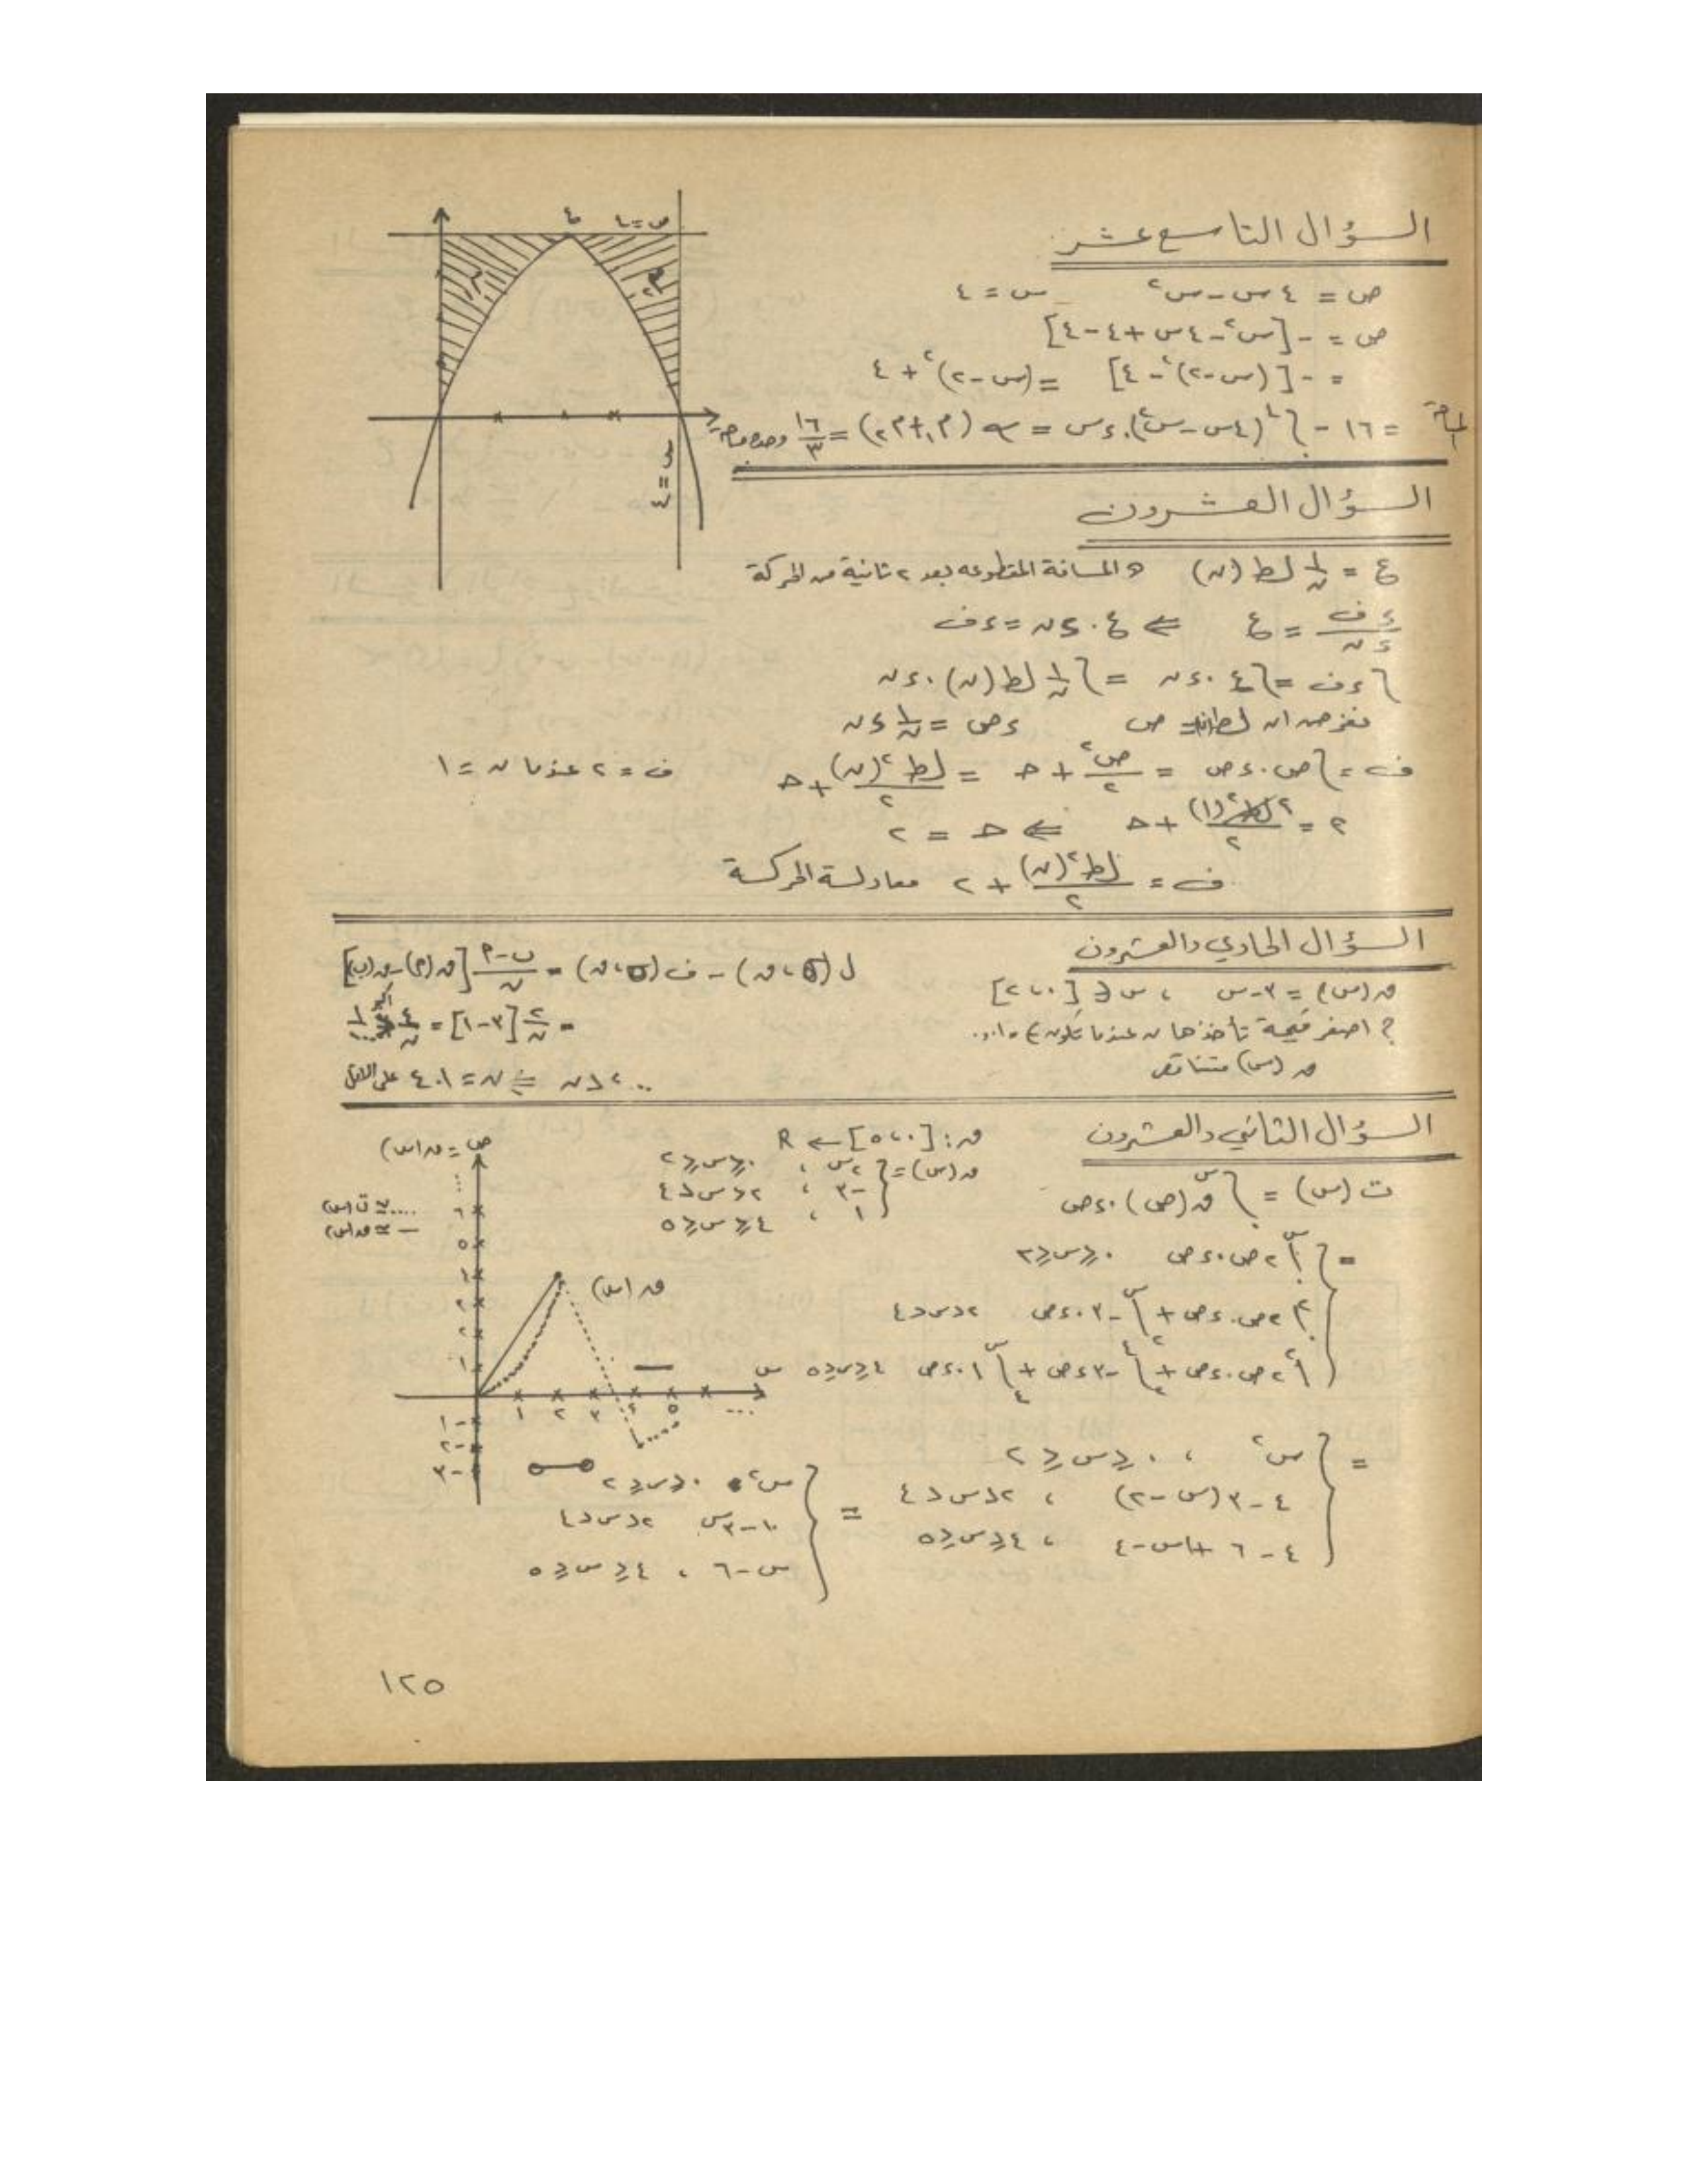 السؤال التاسع عشر
ص = ٤س - س٢   س = ٤
ص = -[س٢ - ٤س + ٤ - ٤]
= -[(س-٢)٢ - ٤] = (س-٢)٢ + ٤
= ١٦ - ∫ (٤س - س٢).ءس = (م١ + م٢) = ١٦/٣
ص=٤
م١
م٢
س=٤
السؤال العشرون
ع = ١/ن لط (ن)   المسافة المقطوعه بعد ٢ ثانية من الحركة
ءف/ءن = ع ⇐ ع.ءن = ءف
∫ءف = ∫ع.ءن = ∫١/ن لط (ن).ءن
نفرض ان لط ن = ص   ءص = ١/ن ءن
ف = ∫ص.ءص = ص٢/٢ + ح = لط٢(ن)/٢ + ح   ف = ٢ عندما ن = ١
٢ = لط٢(١)/٢ + ح ⇐ ح = ٢
ف = لط٢(ن)/٢ + ٢ معادلة الحركة
السؤال الحادي والعشرون
ق(س) = ٣-س ، س ∈ [٠،٢]
؟ اصغر قيمة تأخذها ن عندما تكون
ق(س) متناقص
ل(σ،ق) - ف(σ،ق) = ب-م/ن [ق(م)-ق(ب)]
= ٢/ن [٣-١] = ٤/ن
ن = ٤٠١ على الاقل
السؤال الثاني والعشرون
ق: [٠،٥] → R
ق(س) = { ٢س ، ٠≤س≤٢
-٣ ، ٢<س<٤
١ ، ٤≤س≤٥
ت(س) = ∫ ق(ص).ءص
= { ∫ ٢ص.ءص   ٠≤س≤٢
∫ ٢ص.ءص + ∫ -٣.ءص   ٢<س<٤
∫ ٢ص.ءص + ∫ -٣ءص + ∫ ١.ءص   ٤≤س≤٥
= { س٢ ، ٠≤س≤٢
٤-٣(س-٢) ، ٢<س<٤
٤-٦+س-٤ ، ٤≤س≤٥
= { س٢   ٠≤س≤٢
١٠-٣س   ٢<س<٤
س-٦ ، ٤≤س≤٥
ص = ق(س)
.... ≅ ت(س)
— ≅ ق(س)
ق(س)
س
١ ٢ ٣ ٤ ٥ ...
-١
-٢
-٣
١٢٥